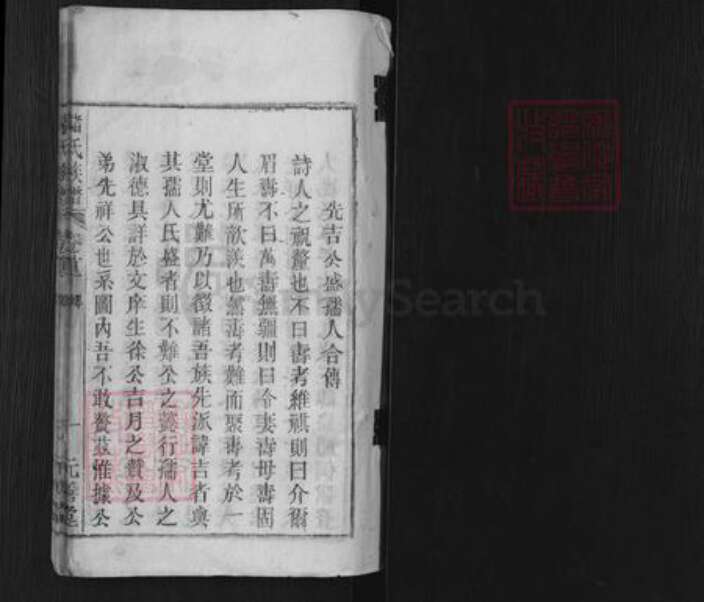 先吉公盛孺人合傳
詩人之祝釐也不曰壽考維祺則曰介爾
眉壽不曰萬壽無疆則曰令妻壽母壽固
人生所歆羨也然壽者難而聚壽者於一
堂則尤難乃以徵諸吾族先派諱吉者與
其孺人氏盛者則不難公之懿行孺人之
淑德具詳於文庠生徐公吉月之贊及公
弟先祥公也系圖內吾不敢贅茲惟據公
氏族譜
傳
一
元善堂
MySearch